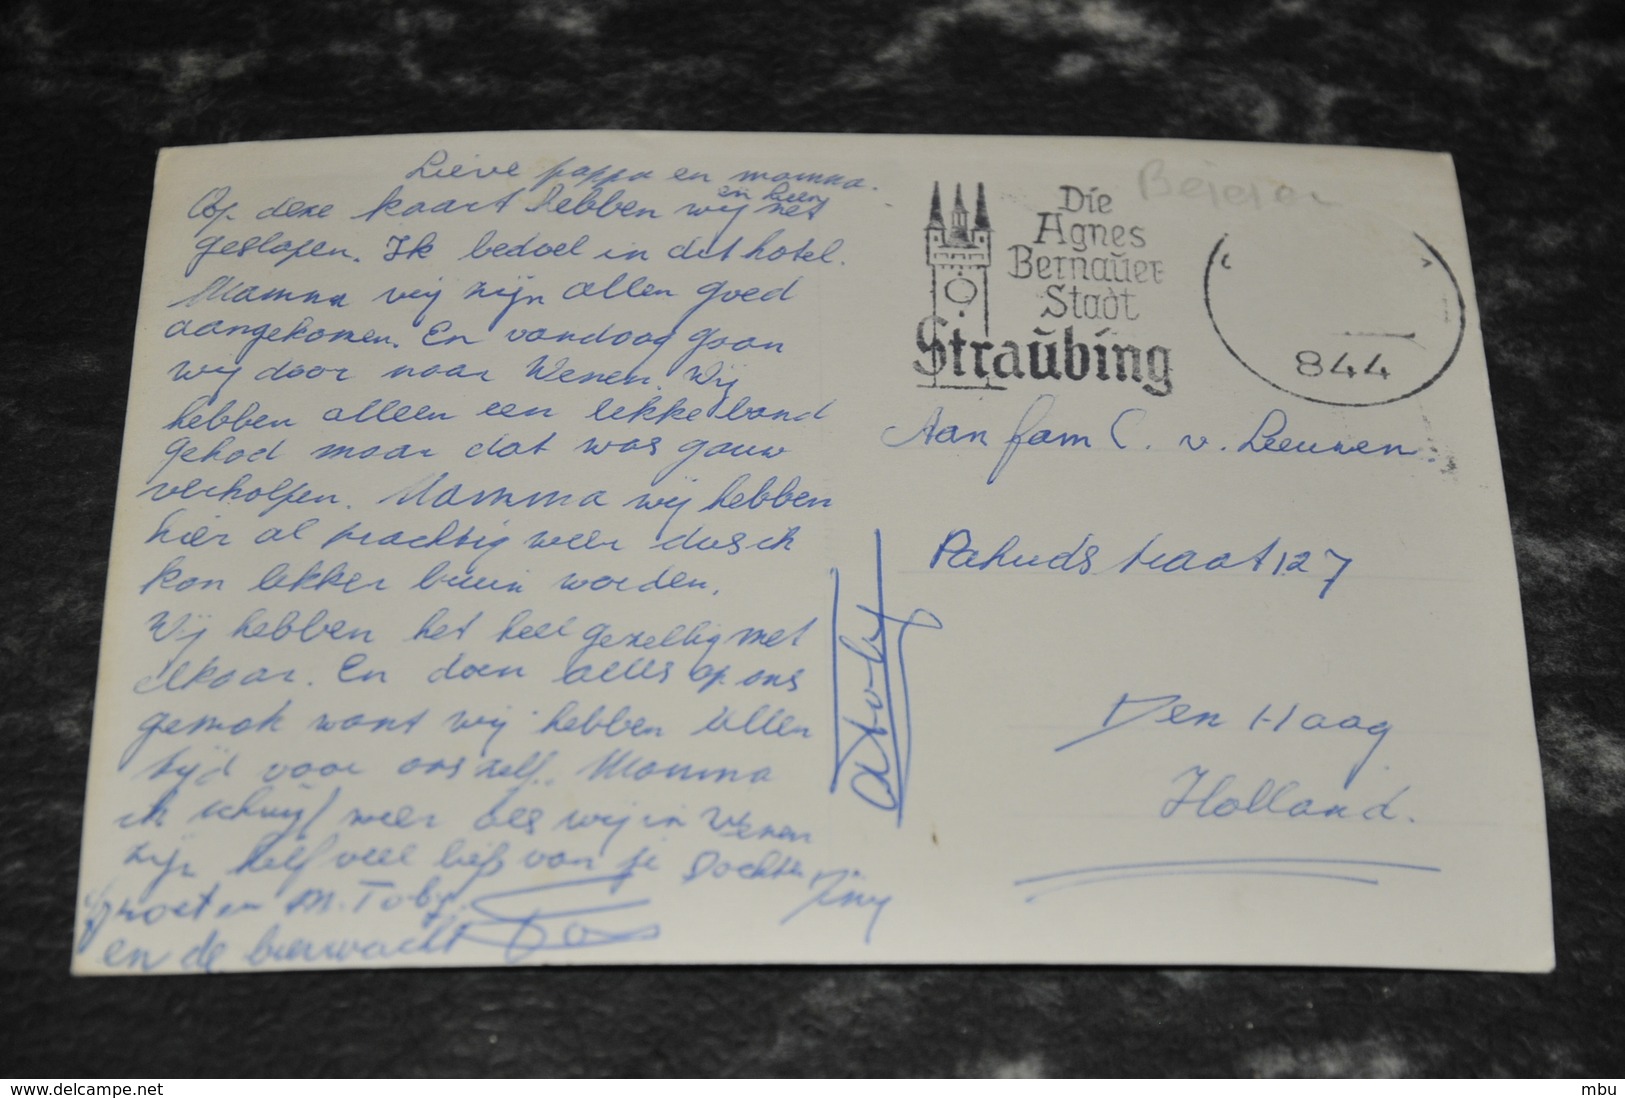 Lieve pappa en mamma.
Op deze kaart hebben wij net
en keer
geslapen. Ik bedoel in dit hotel.
Mamma wij zijn allen goed
aangekomen. En vandaag gaan
wij door naar Wenen. Wij
hebben alleen een lekke band
gehad maar dat was gauw
verholpen. Mamma wij hebben
hier al prachtig weer dus ik
kan lekker bruin worden.
Wij hebben het heel gezellig met
elkaar. En doen alles op ons
gemak want wij hebben allen
tijd voor ons zelf. Mamma
ik schrijf weer als wij in Wenen
zijn heel veel liefs van je Dochter
Tiny
Groeten M. Toby.
en de
Toby
Beieren
Die
Agnes
Bernauer
Stadt
Straubing
844
Aan fam C. v. Leeuwen.
Pahudstraat 127
Den Haag
Holland.
www.delcampe.net
mbu